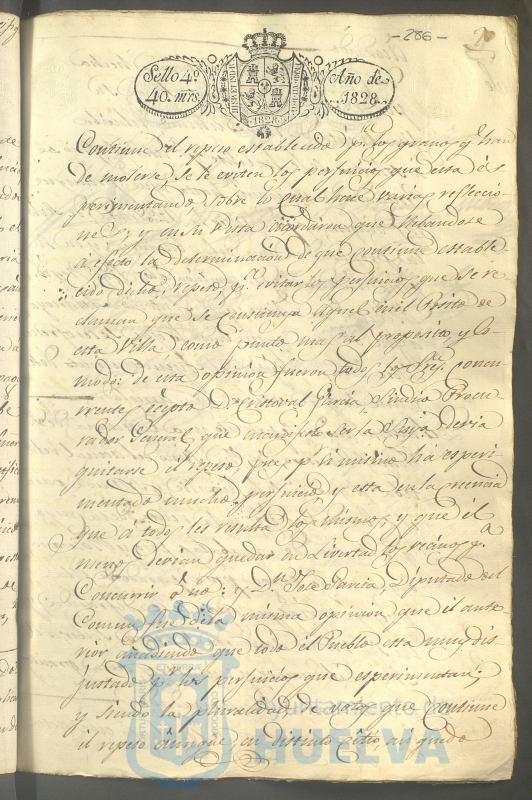 -286-
Sello 4º
40. mrs.
Año de
1828.
HISPANIARUM REX
1828
Continue el repeso establecido pª los granos q han
de molerse, se le eviten los perjuicios que esta es
perimentando, sobre lo qual hace varias refleccio
nes; y en su vista acordaron que llebandose
a efecto la determinacion de que continue estable
cido dicho repeso, pª evitar los perjuicios que se re
claman que se constituya aquel en el Posito de
esta Villa como punto mas al proposito y co
modo: de esta opinion fueron todos los Sres. concu
rrentes, escepto Dn. Cristoval Garcia Sindico Procu
rador General, que manifestó ser la suya devia
quitarse el repeso pues pr. si mismo há esperi
mentado muchos perjuicios, y esta en la creencia
que á todos les resulta los mismos, y que él
menos devian quedar en Livertad los vecinos pª
concurrir ó no: y Dn. Jose Garcia, Diputado del
Comun fue dela misma opinion que el ante
rior añadiendo que todo el Pueblo esta muy dis
justado pr. los perjuicios que esperimentan:
y siendo la pluralidad de votos que continue
el repeso aunque en distinto sitio asi quedo
Ayuntamiento de
HUELVA